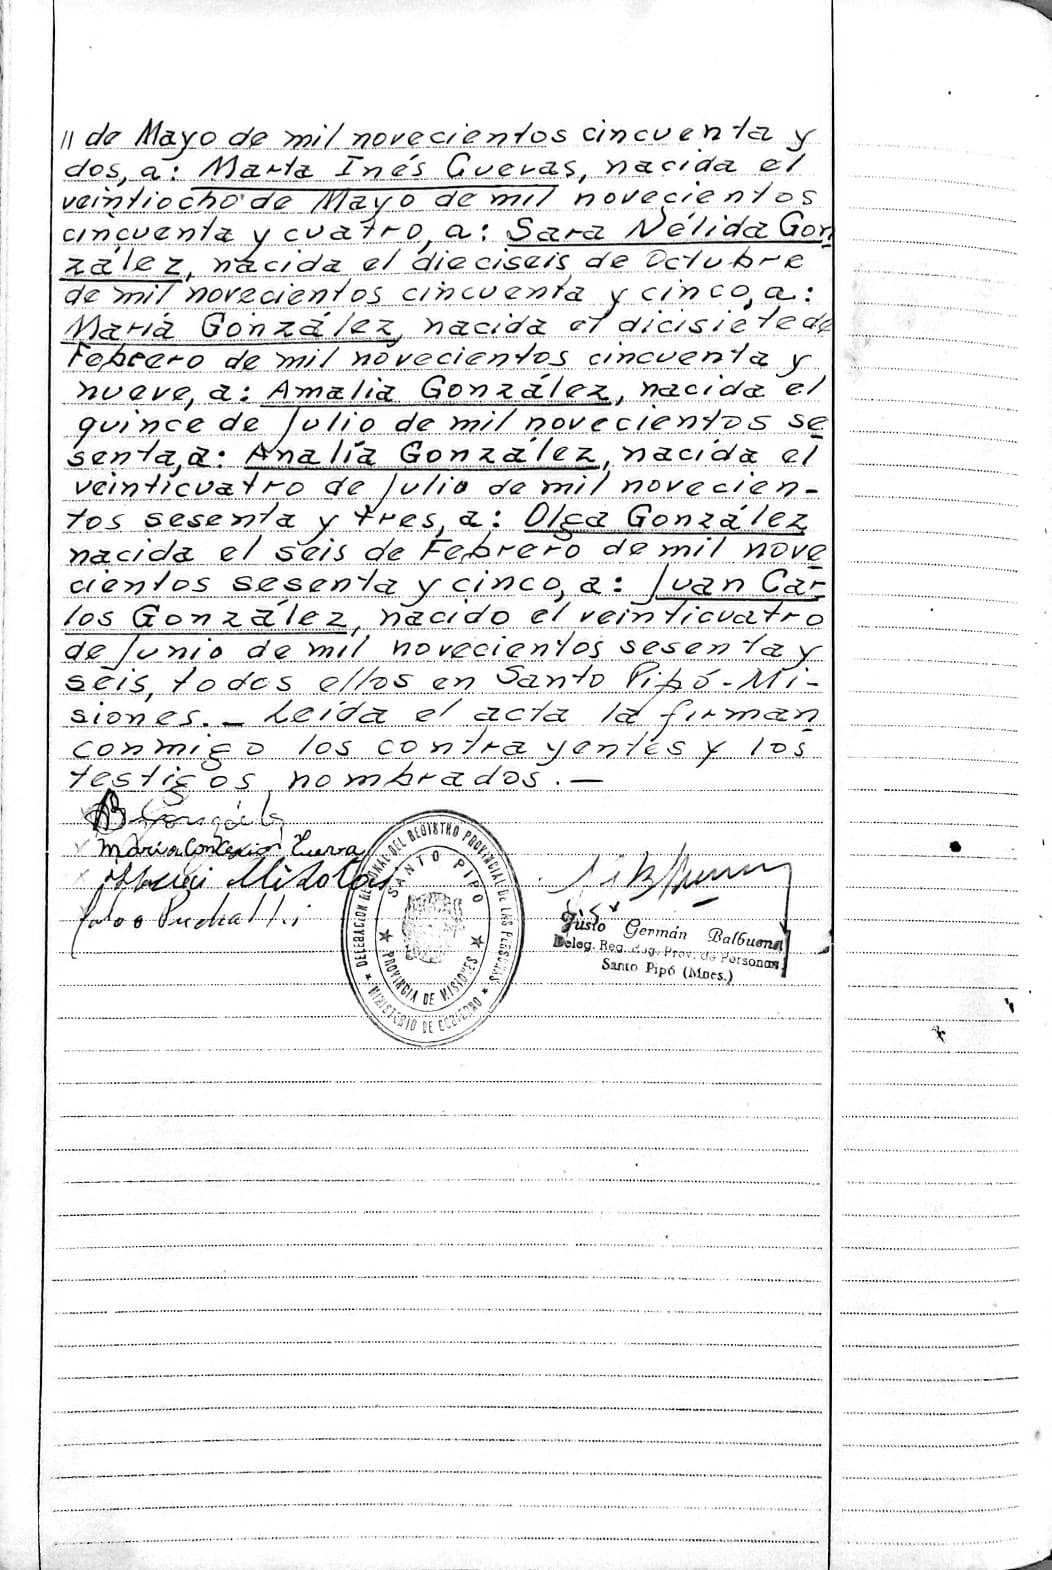 // de Mayo de mil novecientos cincuenta y
dos, a: Marta Inés Cuevas, nacida el
veintiocho de Mayo de mil novecientos
cincuenta y cuatro, a: Sara Nélida Gon
zález, nacida el dieciseis de Octubre
de mil novecientos cincuenta y cinco, a:
María González, nacida el dicisiete de
Febrero de mil novecientos cincuenta y
nueve, a: Amalia González, nacida el
quince de Julio de mil novecientos se
senta, a: Analía González, nacida el
veinticuatro de Julio de mil novecien-
tos sesenta y tres, a: Olga González
nacida el seis de Febrero de mil nove
cientos sesenta y cinco, a: Juan Car-
los González, nacido el veinticuatro
de Junio de mil novecientos sesenta y
seis, todos ellos en Santo Pipó-Mi-
siones.- Leída el acta la firman
conmigo los contrayentes y los
testigos nombrados.-
B González
Maria
DELEGACION REGIONAL DEL REGISTRO PROVINCIAL DE LAS PERSONAS
SANTO PIPO
PROVINCIA DE MISIONES
MINISTERIO DE GOBIERNO
Justo Germán Balbuena
Deleg. Reg. Reg. Prov. de Personas
Santo Pipó (Mnes.)